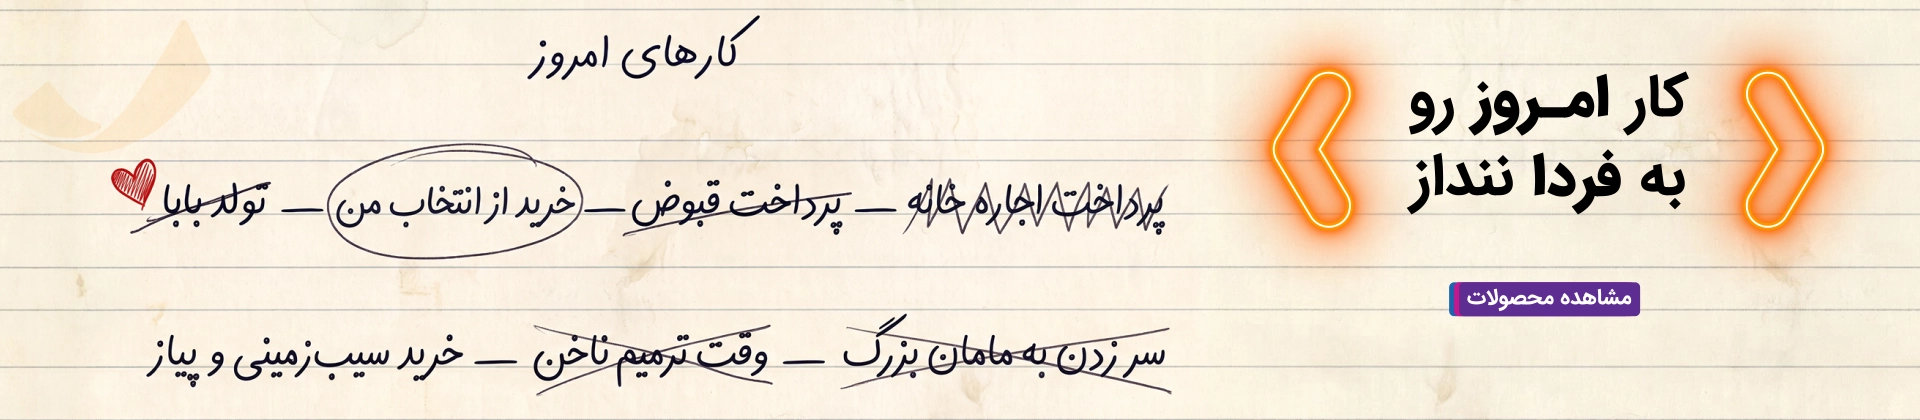 کار امـروز رو
به فردا ننداز
مشاهده محصولات
کارهای امروز
پرداخت اجاره خانه — پرداخت قبوض — خرید از انتخاب من — تولد بابا
سر زدن به مامان بزرگ — وقت ترمیم ناخن — خرید سیب‌زمینی و پیاز